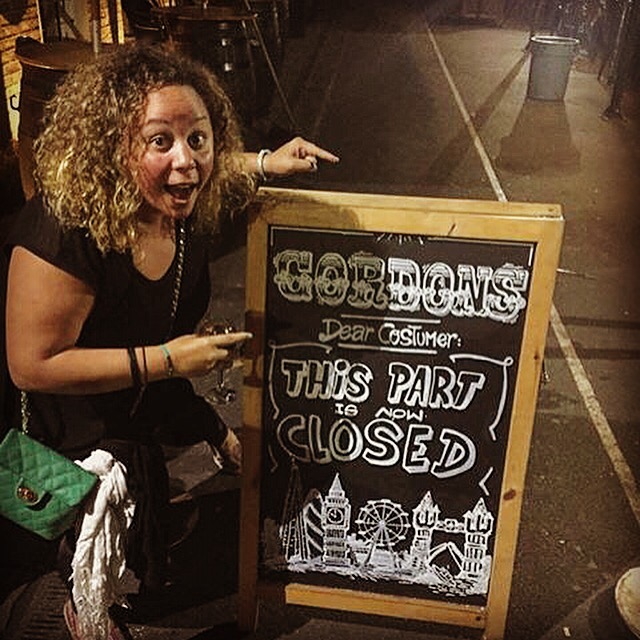 GORDONS
Dear Costumer:
THiS PART
iS NOW
CLOSED